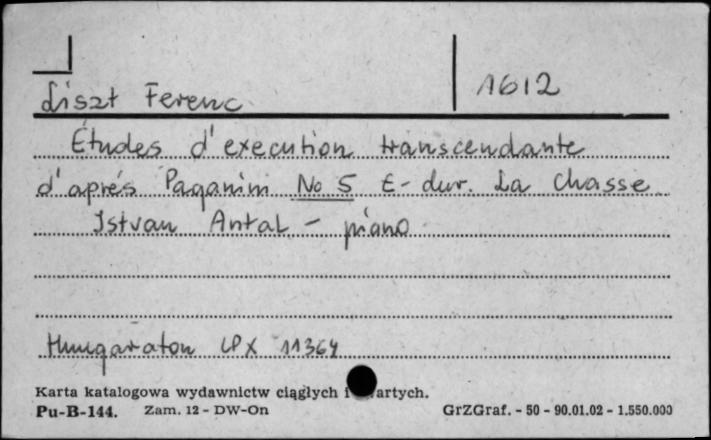 Liszt Ferenc
1612
Études d'execution transcendante
d'aprés Paganini No 5 E-dur. La Chasse
Istvan Antal - piano
Hungaraton LPX 11364
Karta katalogowa wydawnictw ciągłych i artych.
Pu-B-144. Zam. 12 - DW-On GrZGraf. - 50 - 90.01.02 - 1.550.000